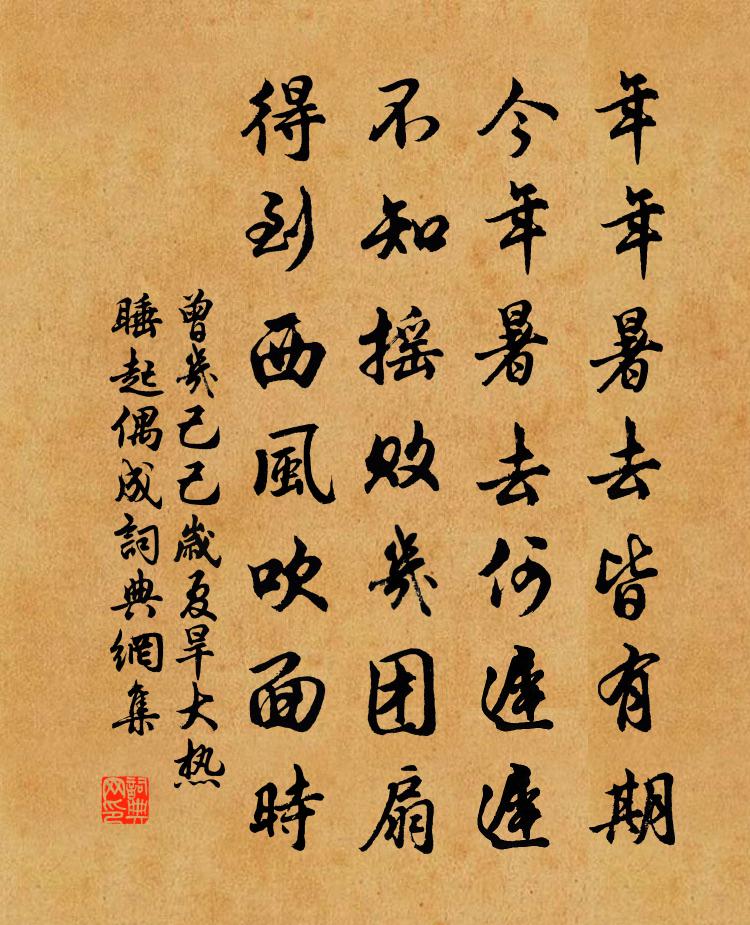 年年暑去皆有期
今年暑去何遲遲
不知摇败幾团扇
得到西風吹面時
曾幾己已歲夏旱大热
睡起偶成詞典網集
詞典网印